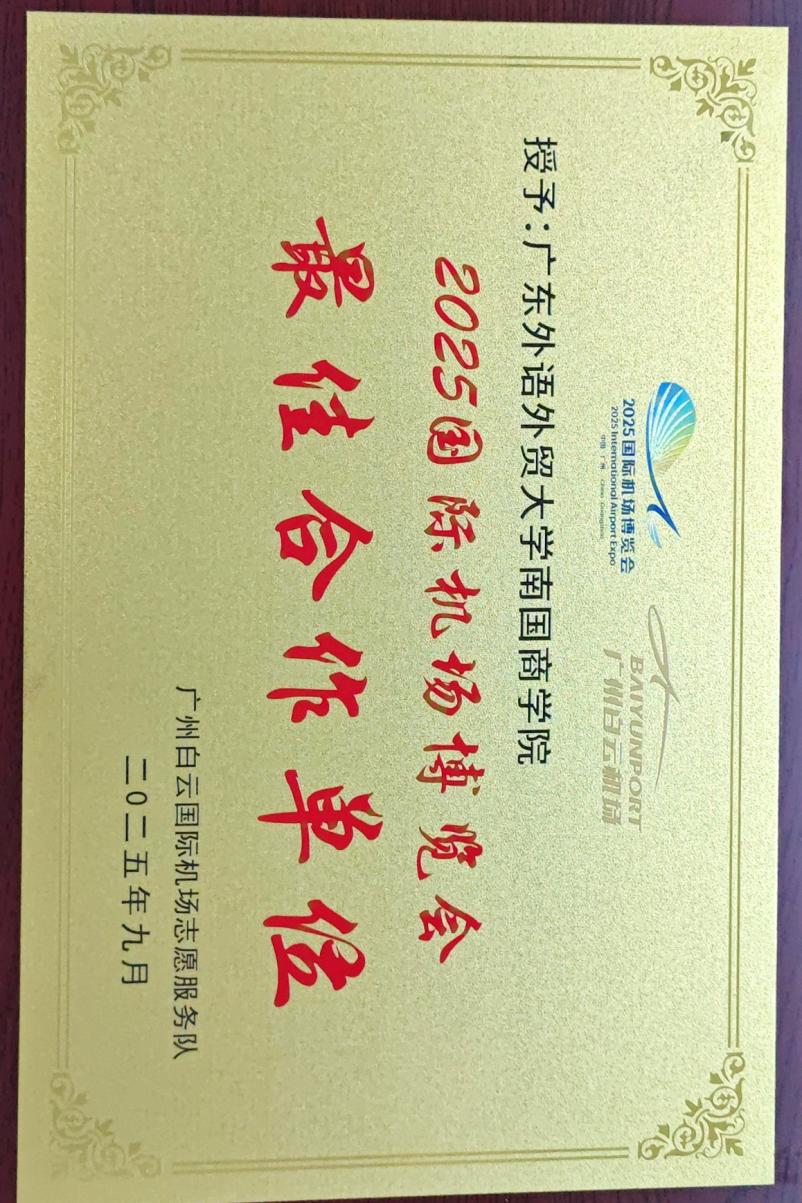 2025国际机场博览会
2025 International Airport Expo
中国·广州 China·Guangzhou
BAIYUNPORT
广州白云机场
授予：广东外语外贸大学南国商学院
2025国际机场博览会
最佳合作单位
广州白云国际机场志愿服务队
二〇二五年九月